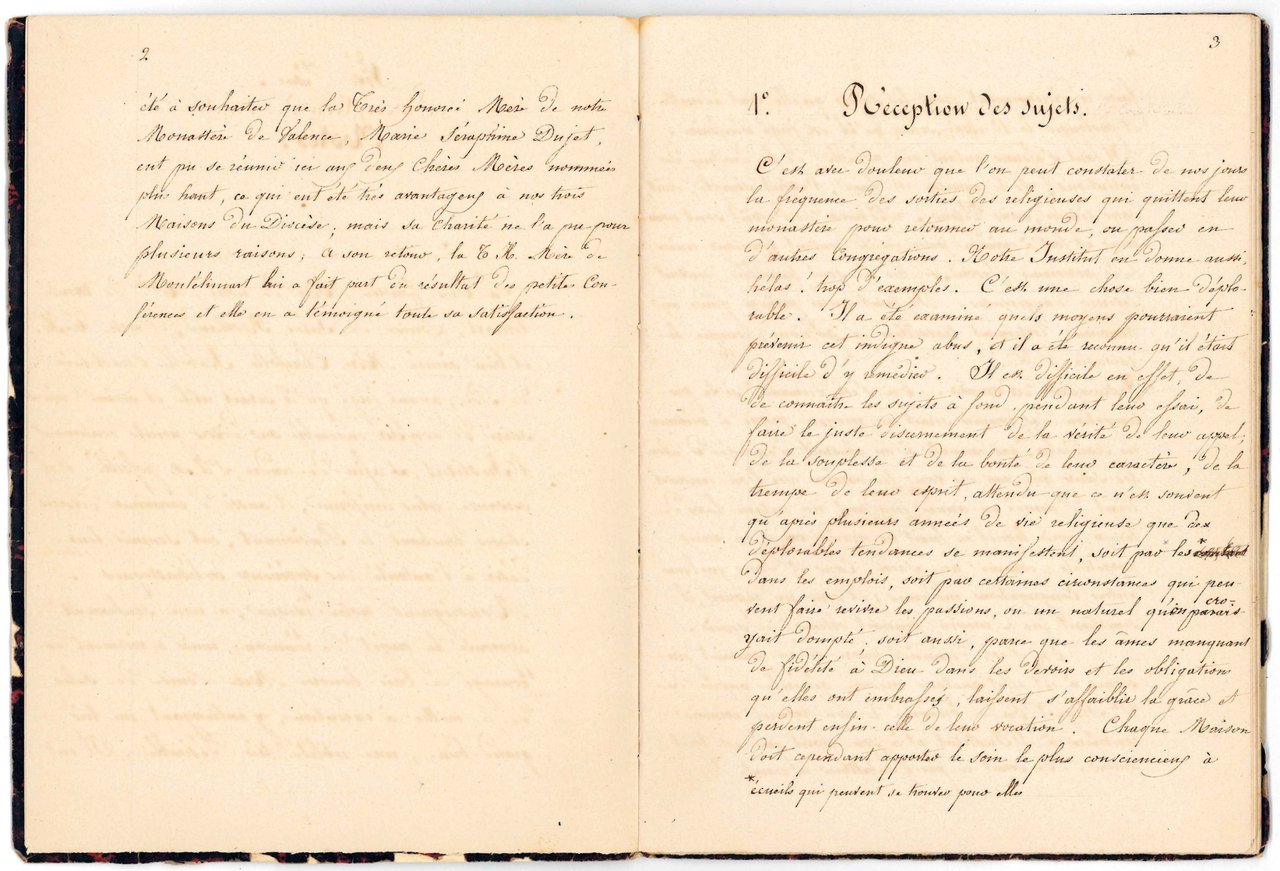 2
été à souhaiter que la Très-honorée Mère de notre
Monastère de Valence, Marie Séraphine Dujet,
eut pu se réunir ici aux deux Chères Mères nommées
plus haut, ce qui eut été très avantageux à nos trois
Maisons du Diocèse, mais sa Charité ne l'a pu pour
plusieurs raisons; a son retour, la T. H. Mère de
Montélimart lui a fait part du résultat des petites Con-
férences et elle en a témoigné toute sa satisfaction.
3
1°. Réception des sujets.
C'est avec douleur que l'on peut constater de nos jours
la fréquence des sorties des religieuses qui quittent leur
monastère pour retourner au monde, ou passer en
d'autres Congrégations. Notre Institut en donne aussi,
hélas! trop d'exemples. C'est une chose bien déplo-
rable. Il a été examiné quels moyens pourraient
prévenir cet indigne abus, et il a été reconnu qu'il était
difficile d'y remédier. Il est difficile en effet, de
de connaître les sujets à fond pendant leur essai, de
faire le juste discernement de la vérité de leur appel,
de la souplesse et de la bonté de leur caractère, de la
trempe de leur esprit, attendu que ce n'est souvent
qu'après plusieurs années de vie religieuse que de
déplorables tendances se manifestent, soit par les *
dans les emplois, soit par certaines circonstances qui peu-
vent faire revivre les passions, ou un naturel qu'on cro-
yait dompté, soit aussi, parce que les âmes manquant
de fidélité à Dieu dans les devoirs et les obligations
qu'elles ont embrassés, laissent s'affaiblir la grâce et
perdent enfin celle de leur vocation. Chaque Maison
doit cependant apporter le soin le plus consciencieux à
* écueils qui peuvent se trouver pour elles